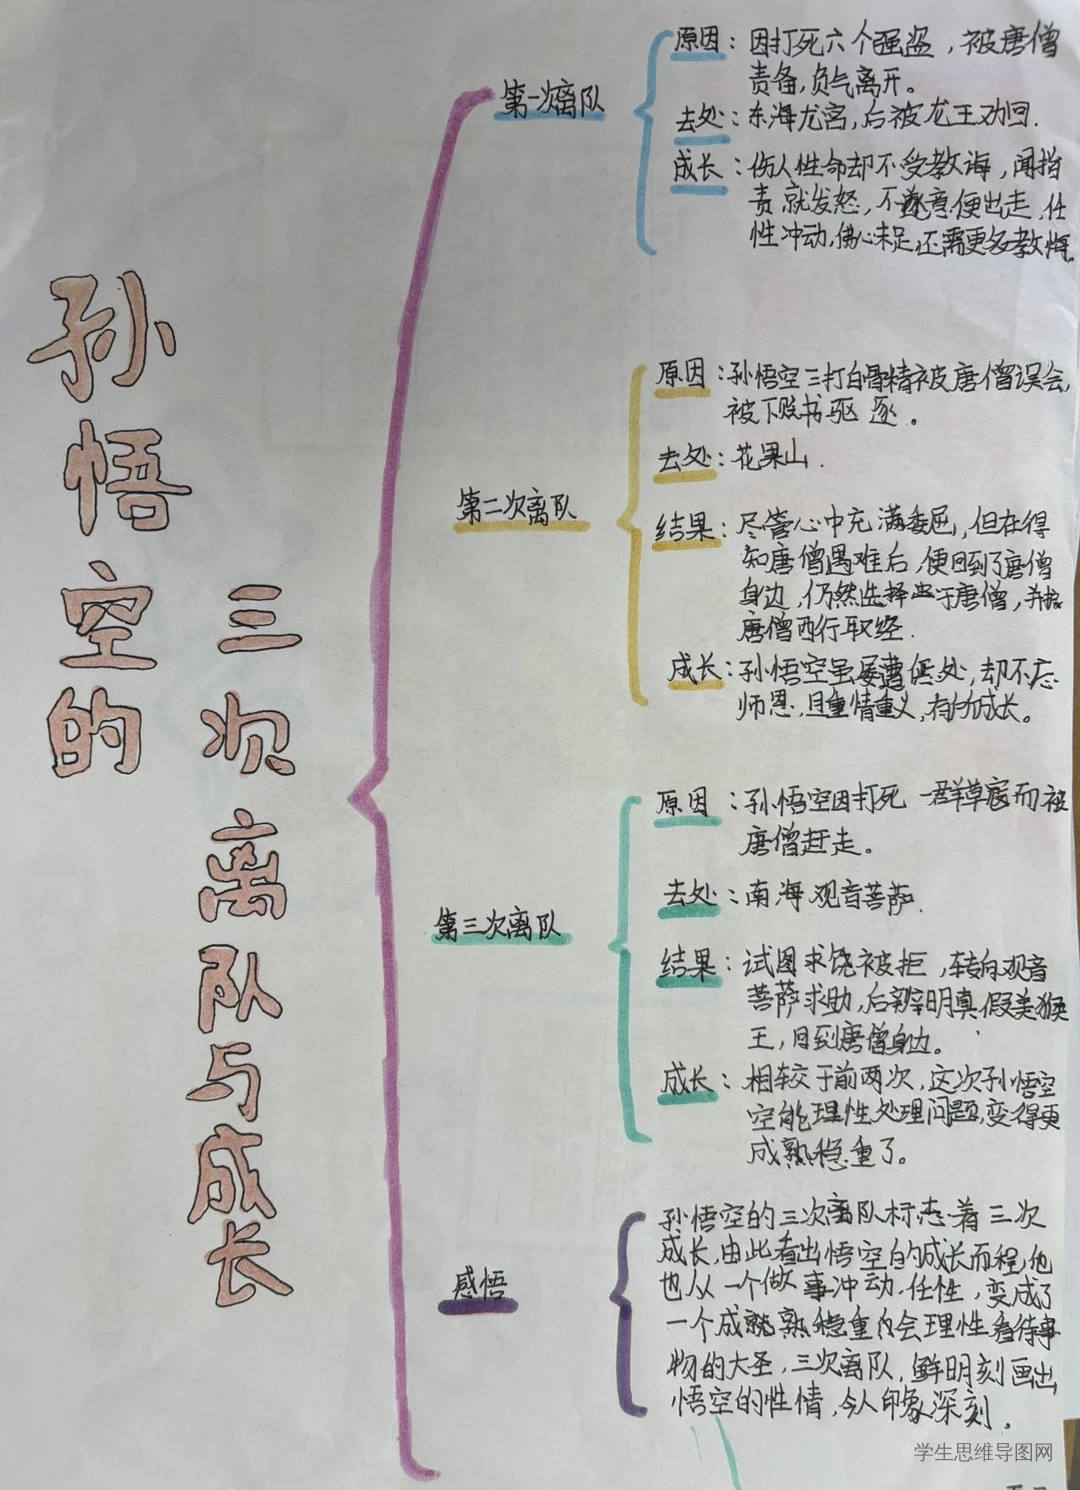 孙悟空的
三次离队与成长
第一次离队
原因：因打死六个强盗，被唐僧
责备，负气离开。
去处：东海龙宫，后被龙王劝回.
成长：伤人性命却不受教诲，闻指
责就发怒，不遂意便出走，任
性冲动，佛心未足还需更多教悔。
第二次离队
原因：孙悟空三打白骨精被唐僧误会，
被下贬书驱逐。
去处：花果山.
结果：尽管心中充满委屈，但在得
知唐僧遇难后，便回到了唐僧
身边，仍然选择忠于唐僧，并
唐僧西行取经.
成长：孙悟空虽屡遭惩处，却不忘
师恩，且重情重义，有所成长。
第三次离队
原因：孙悟空因打死一群草寇而被
唐僧赶走。
去处：南海观音菩萨.
结果：试图求饶被拒，转向观音
菩萨求助，后辨明真假美猴
王，回到唐僧身边。
成长：相较于前两次，这次孙悟空
空能理性处理问题，变得更
成熟稳重了。
感悟
孙悟空的三次离队标志着三次
成长，由此看出悟空的成长而程，他
也从一个做事冲动，任性，变成了
一个成就熟稳重会理性看待事
物的大圣，三次离队，鲜明刻画出
悟空的性情，令人印象深刻.
学生思维导图网